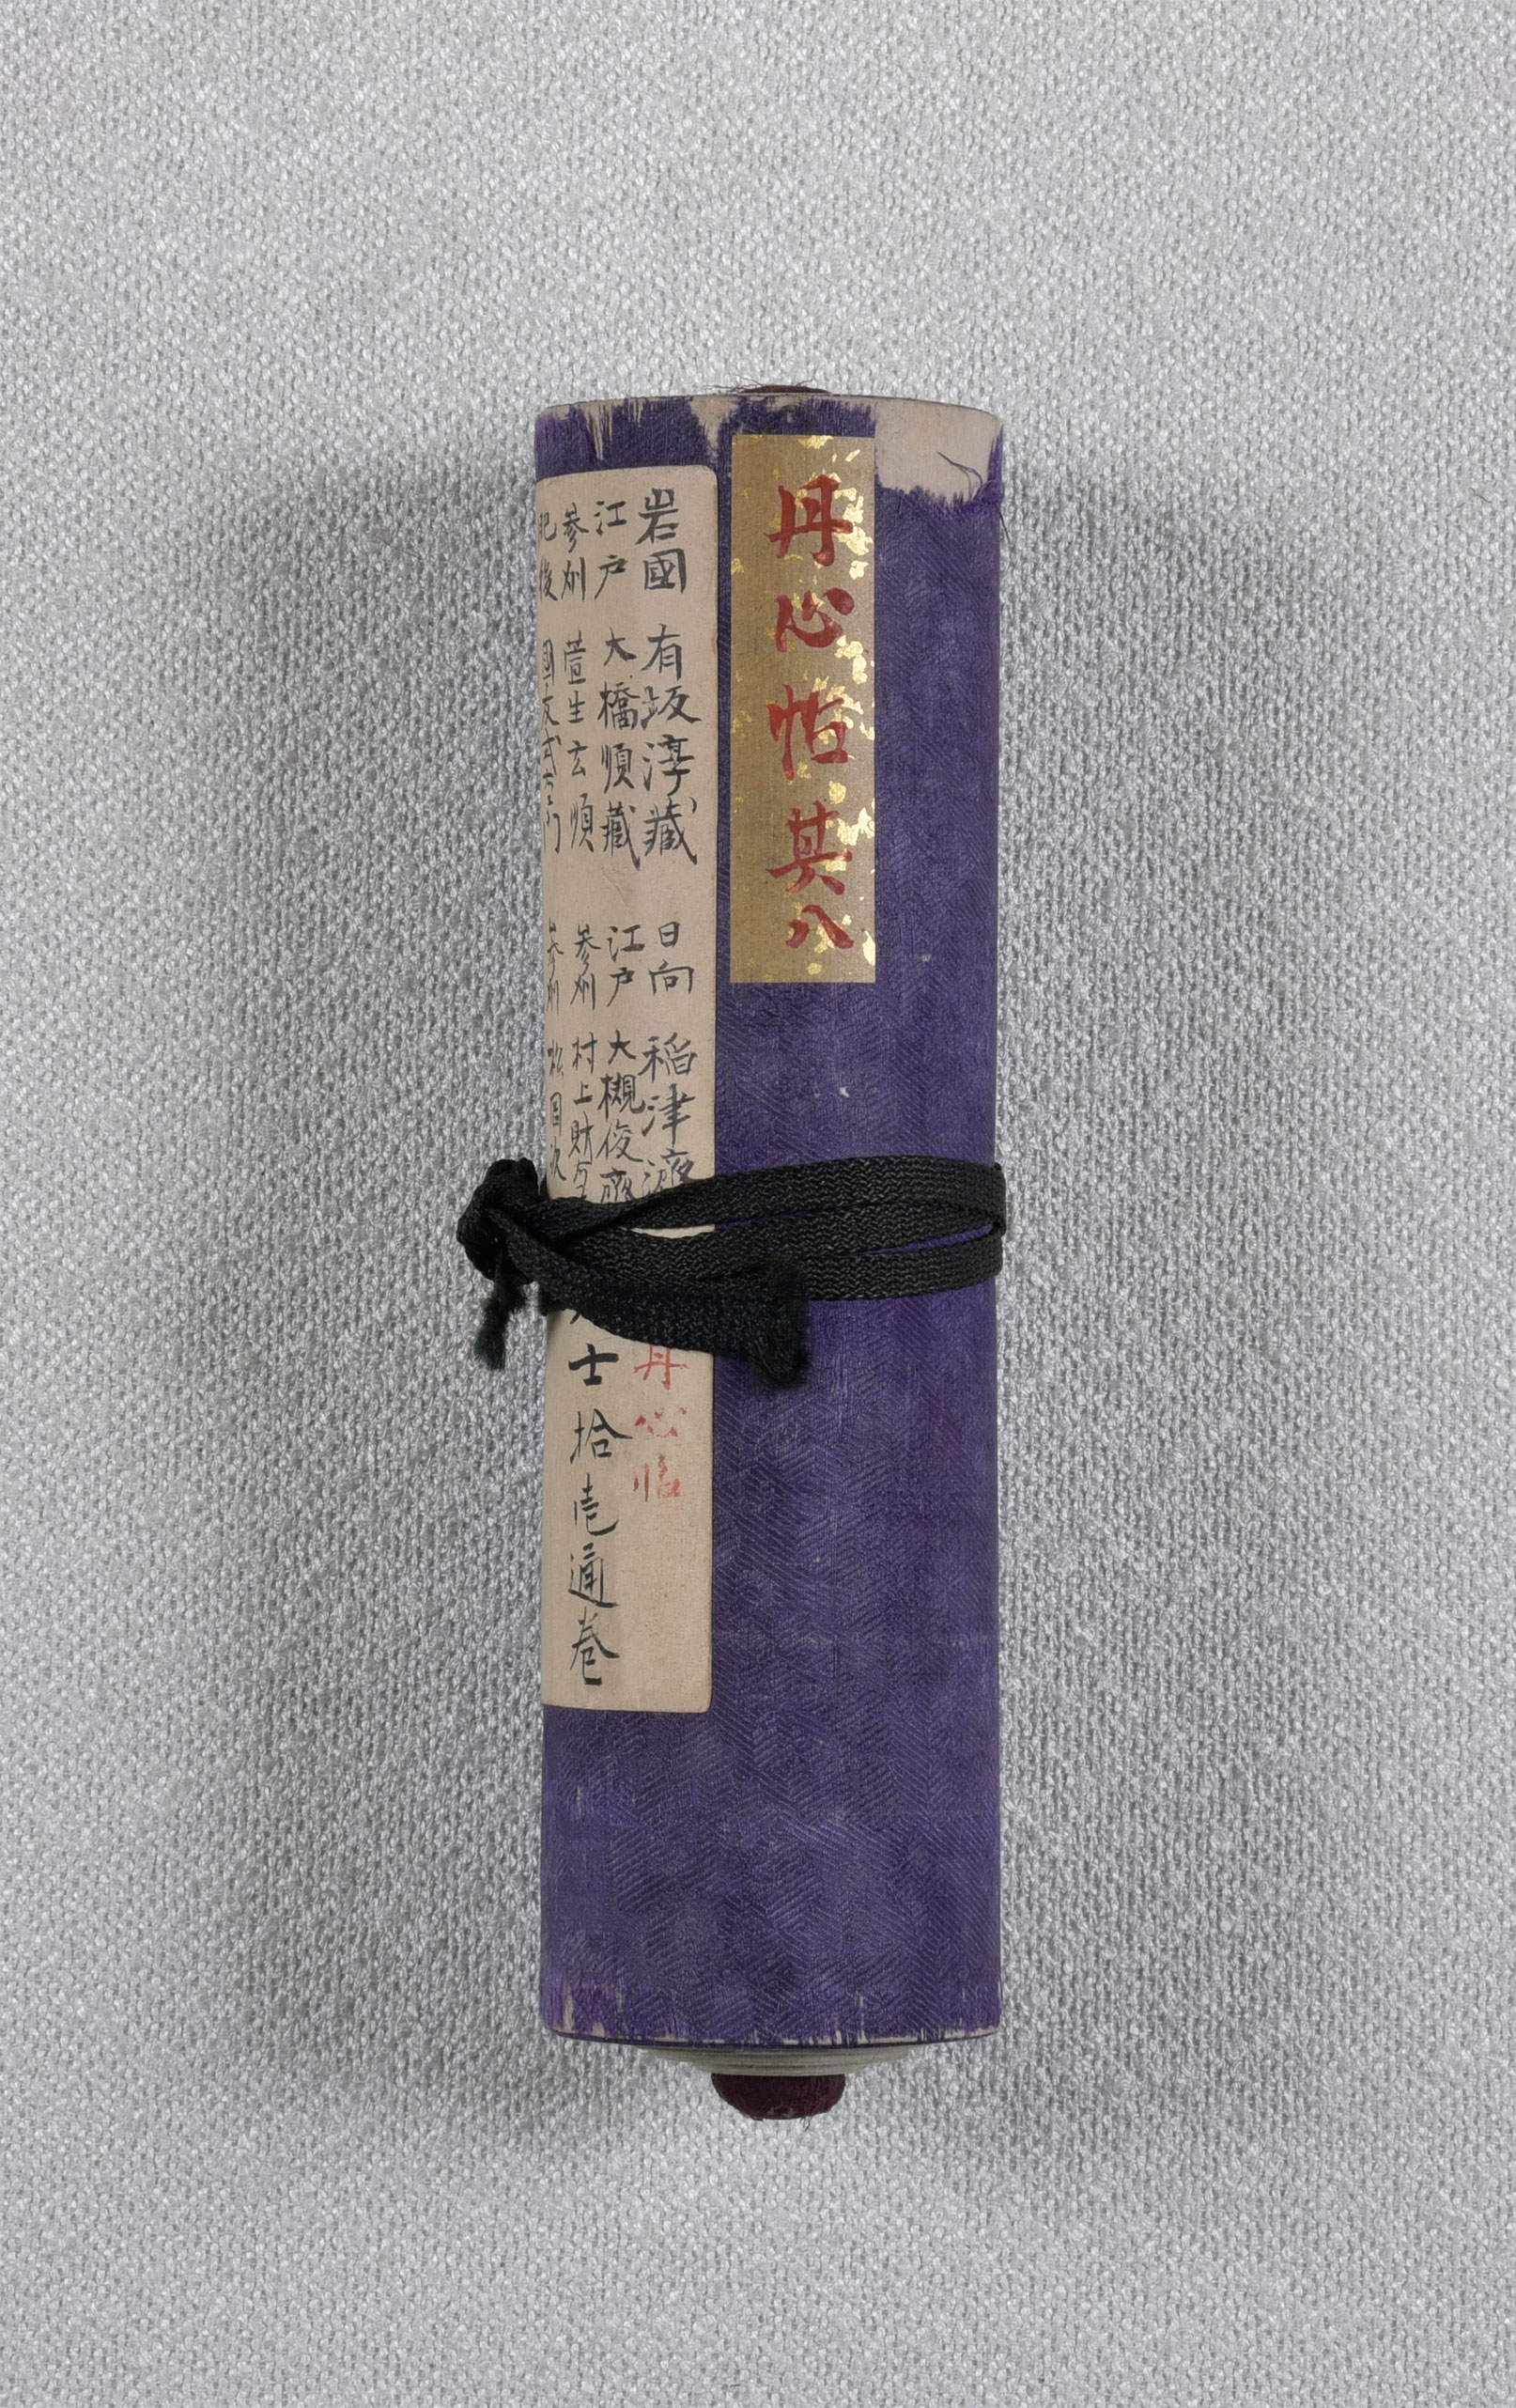 丹心帖其八
岩國 有坂淳藏 日向 稻津濟
江戸 大橋順藏 江戸 大槻俊齋
参州 萱生玄順 参州 村上財右
肥後 國友式右衛門 参州 松岡次
丹心帖
士拾壱通巻